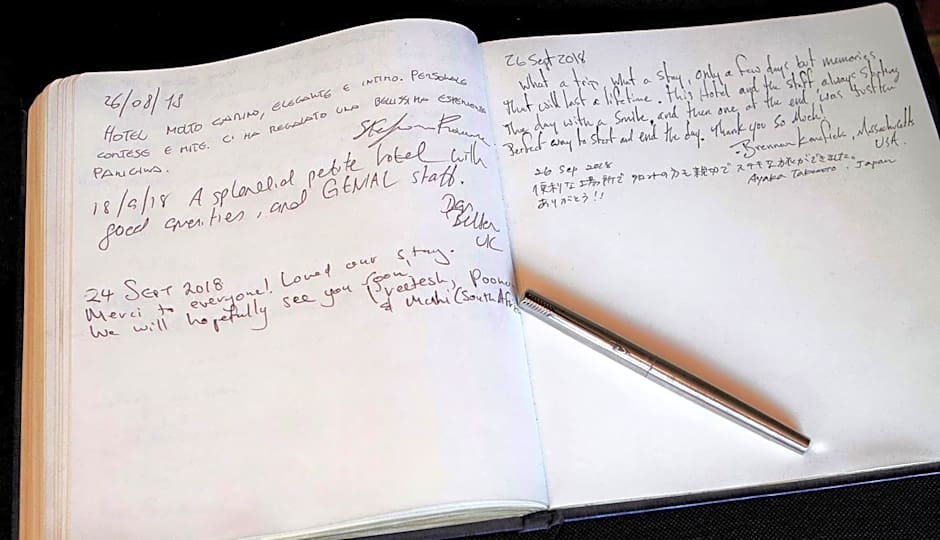 26/08/18
HOTEL MOLTO CARINO, ELEGANTE E INTIMO. PERSONALE
CORTESE E MITE. CI HA REGALATO UNA BELLISSIMA ESPERIENZA
PARIGINA.
18/9/18 A splendid petite hotel with
good amenities, and GENIAL staff.
UK
24 SEPT 2018
Merci to everyone! Loved our stay.
We will hopefully see you soon,
Preetesh, Poonam
& Mahi (South Afri
26 Sept 2018
What a trip, what a stay, only a few days but memories
that will last a lifetime. This Hotel and the staff always starting
the day with a smile, and then one at the end, was just the
Perfect way to start and end the day. Thank you so much!
-Brennan, Massachusetts
USA.
26 Sep 2018
便利な場所で フロントの方も親切で ステキな旅ができました。
ありがとう!!
Ayaka, Japan